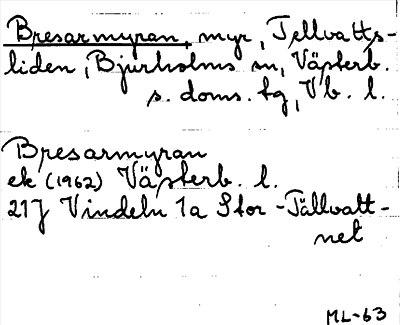 Bresarmyran, myr, Tellvatts-
liden, Bjurholms sn, Västerb.
s. doms. tg, Vb. l.
Bresarmyran
ek (1962) Västerb. l.
21J Vindeln 1a Stor-Tällvatt-
net
ML-63